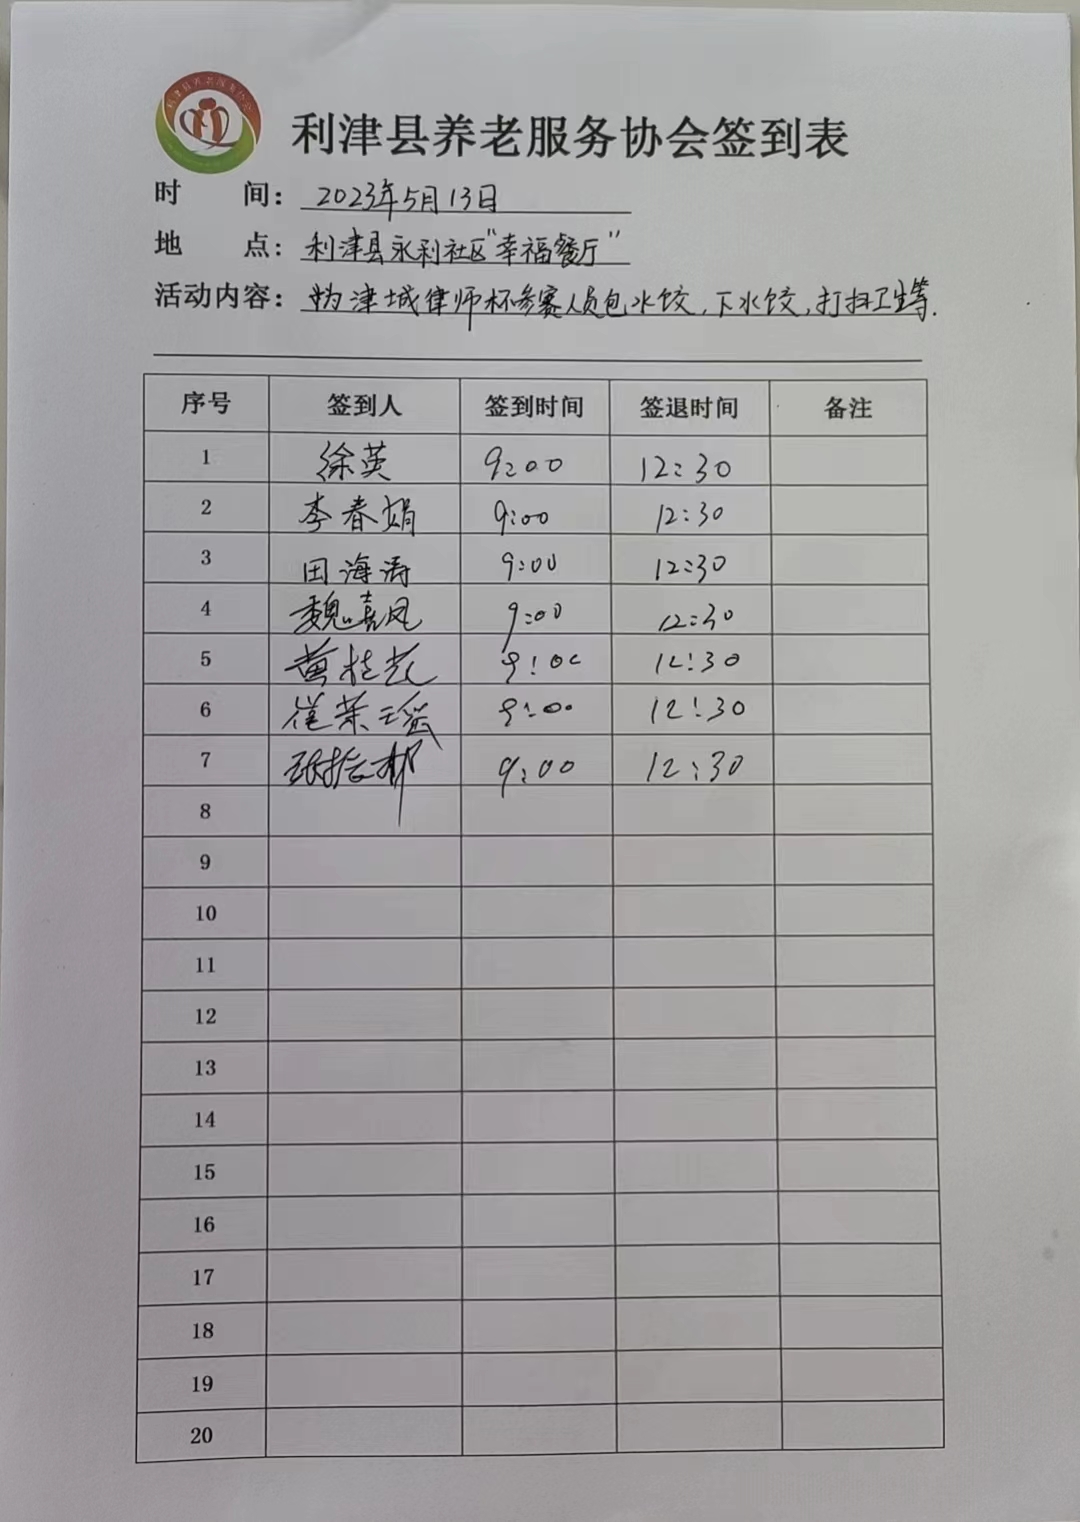 利津县养老服务协会
利津县养老服务协会签到表
时 间: 2023年5月13日
地 点: 利津县永利社区"幸福餐厅"
活动内容: 为津城律师杯参赛人员包水饺,下水饺,打扫卫生等.
序号 签到人 签到时间 签退时间 备注
1 徐英 9:00 12:30
2 李春娟 9:00 12:30
3 田海涛 9:00 12:30
4 魏喜凤 9:00 12:30
5 黄桂花 9:00 12:30
6 崔荣瑶 9:00 12:30
7 9:00 12:30
8
9
10
11
12
13
14
15
16
17
18
19
20